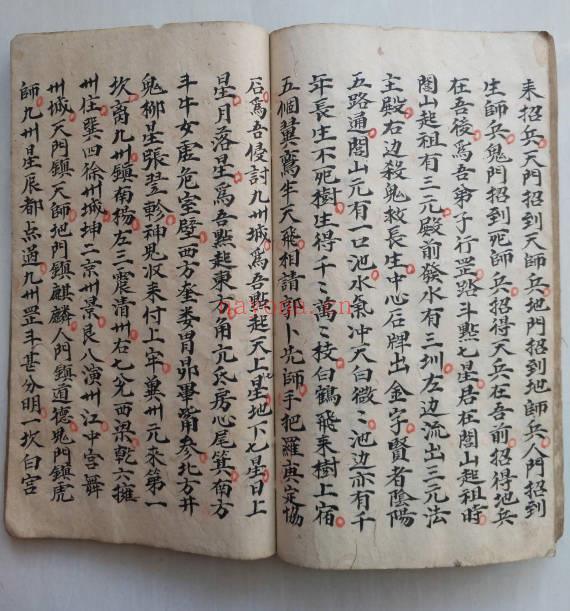 来招兵天門招到天師兵地門招到地師兵人門招到
生師兵鬼門招到死師兵招得天兵在吾前招得地兵
在吾後爲吾弟子行罡路斗點七星居在閭山起祖時
閭山起祖有三元殿前發水有三圳左边流出三元法
主殿右边殺鬼救長生中心石牌出金字賢者陰陽
五路通閭山元有一口池水氣冲天白微〻池边亦有千
年長生不死樹生得千〻萬〻枝白鶴飛来樹上宿
五個翼鸞半天飛相請郭卜先師手把羅庚定協
石爲吾侵討九州城爲吾點起天上星地下七星日上
星月落星爲吾點起東方角亢氐房心尾箕南方
斗牛女虛危室壁西方奎娄胃昴畢觜参北方井
鬼柳星張翌軫神見収来付上宰冀州元來第一
坎离九州鎮南揚左三震清州右七兊西梁乾六擁
州住巽四徐州城坤二京州景艮八演州江中宫舞
州城天門鎮天師地門鎮麒麟人門鎮道德鬼門鎮虎
師九州星辰都点過九州罡斗甚分明一坎白宫
nayona.cn